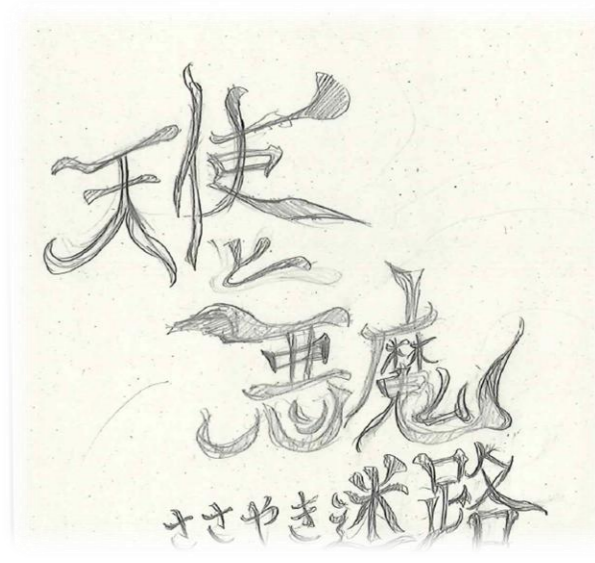 天使
と
悪魔
ささやき迷路